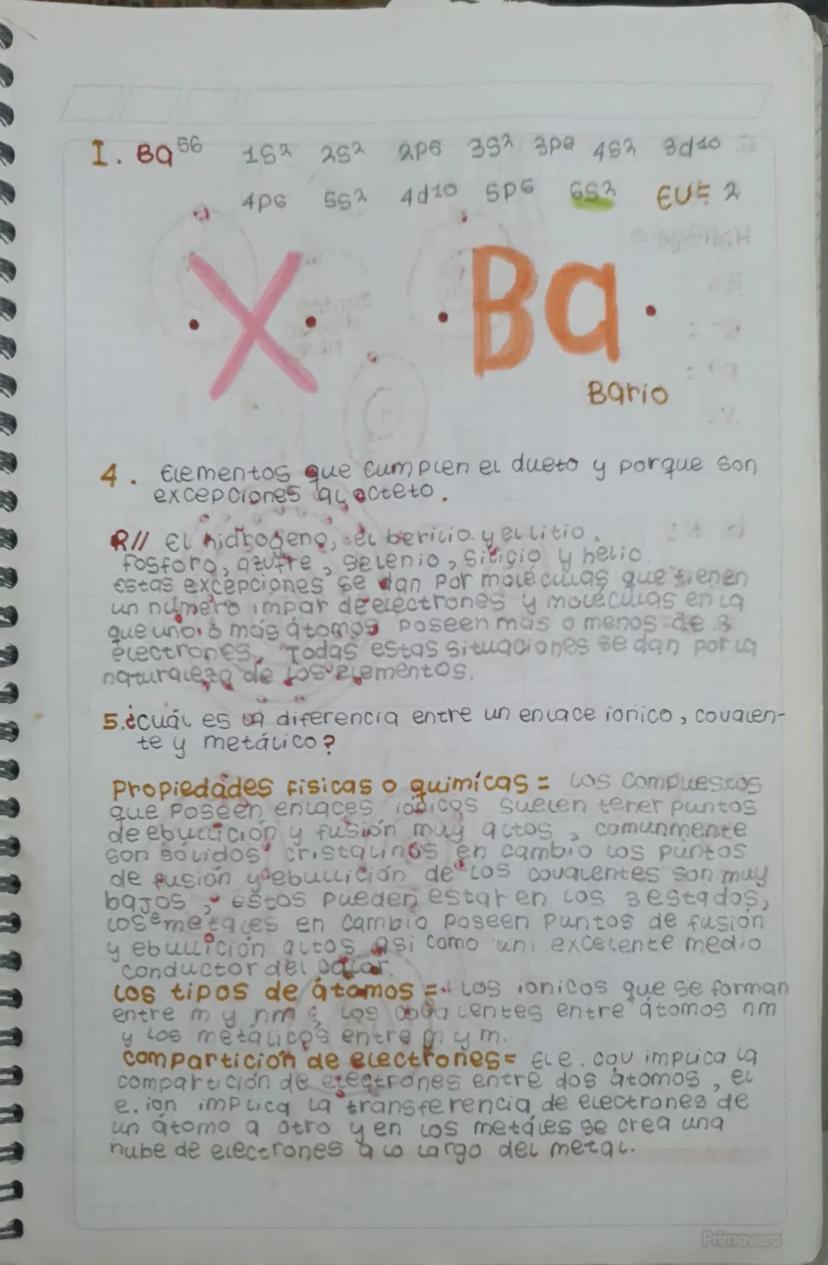 I. Ba56 1s2 2s2 2p6 3s2 3p6 4s2 3d10
4p6 5s2 4d10 5p6 6s2 EV= 2
X Ba
Bario
4. Elementos que cumplen el dueto y porque son
excepciones al octeto.
R// El hidrogeno, el berilio y el litio.
fosforo, azufre, selenio, silicio y helio.
Estas excepciones se dan por moléculas que tienen
un número impar de electrones y moléculas en la
que uno o más átomos poseen más o menos de 8
electrones, Todas estas situaciones se dan por la
naturaleza de los elementos.
5.¿cuál es la diferencia entre un enlace ionico, covalen-
te y metálico?
Propiedades fisicas o quimícas = Los compuestos
que poseen enlaces iónicos suelen tener puntos
de ebullición y fusión muy altos, comunmente
son sólidos cristalinos en cambio los puntos
de fusión y ebullición de los covalentes son muy
bajos, estos pueden estar en los 3 estados,
los metales en cambio poseen puntos de fusión
y ebullición altos asi como un excelente medio
conductor del calor.
Los tipos de átomos = Los ionicos que se forman
entre m y nm ; los covalentes entre átomos nm
y los metálicos entre m y m.
compartición de electrones= El e. cov implica la
compartición de electrones entre dos átomos, el
e. ion implica la transferencia de electrones de
un átomo a otro y en los metáles se crea una
nube de electrones a lo largo del metal.
Primavera